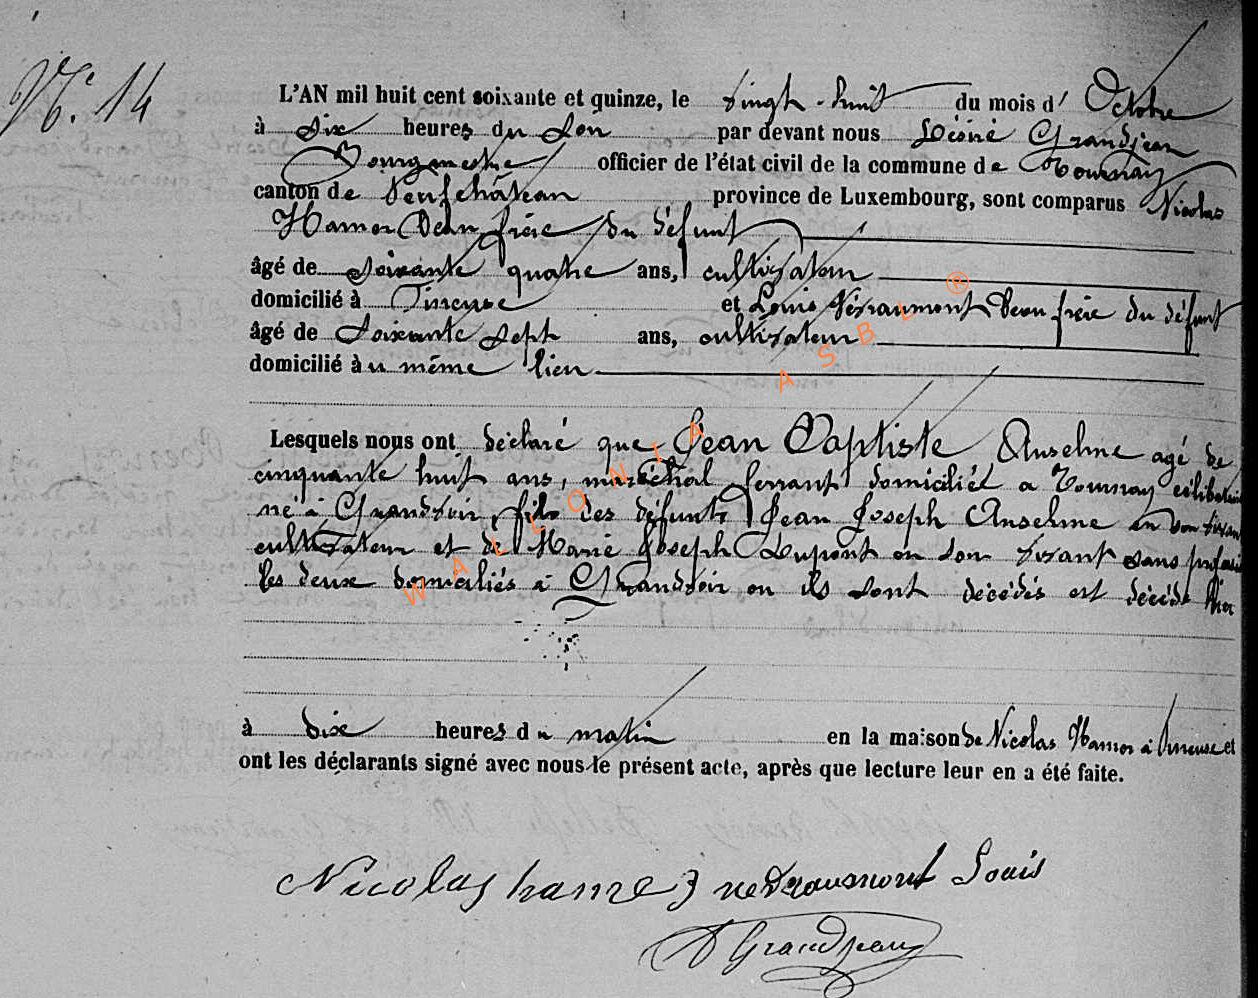 N°. 14
L'AN mil huit cent soixante et quinze, le vingt-huit du mois d' Octobre
à six heures du soir par devant nous Désiré Grandjean
Bourgmestre officier de l'état civil de la commune de Tournay
canton de Neufchâteau province de Luxembourg, sont comparus Nicolas
Hamer Beau frère du défunt
âgé de soixante quatre ans, cultivateur
domicilié à et Louis Nédraumont Beau frère du défunt
âgé de Soixante sept ans, cultivateur
domicilié à u même lieu
Lesquels nous ont déclaré que Jean Baptiste Anselme agé de
cinquante huit ans, maréchal ferrant domicilié a Tournay célibataire
né à Grandvoir, fils des défunts Jean Joseph Anselme en son vivant
cultivateur et de Marie Joseph Dupont en son vivant sans profession
les deux domiciliés à Grandvoir ou ils sont décédés est décédé hier
à dix heures du matin en la maison de Nicolas Hamer à et
ont les déclarants signé avec nous le présent acte, après que lecture leur en a été faite.
Nicolas hamer nedraumont Louis
D Grandjean
WALLONIA ASBL ®